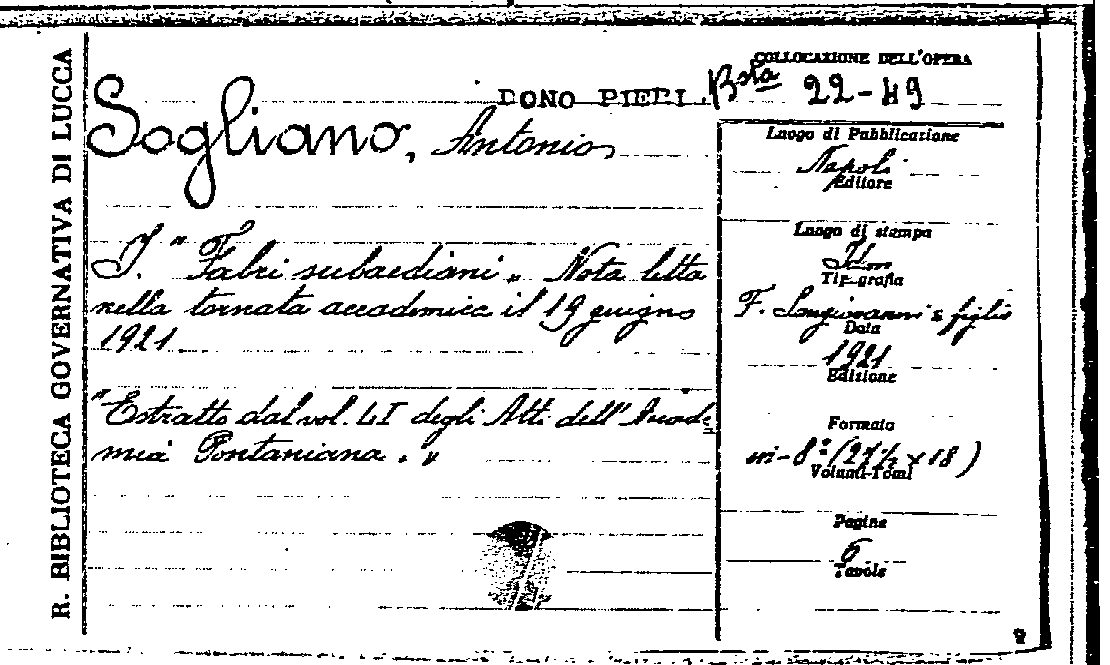 R. BIBLIOTECA GOVERNATIVA DI LUCCA
COLLOCAZIONE DELL'OPERA
DONO PIERI. Bsta 22-49
Sogliano, Antonio
I. "Fabri subaediani„ Nota letta
nella tornata accademica il 19 giugno
1921
"Estratto dal vol. LI degli Atti dell'Accade
mia Pontaniana. „
Luogo di Pubblicazione
Napoli
Editore
Luogo di stampa
Id.
Tipografia
F. Sangiovanni e figlio
Data
1921
Edizione
Formato
in-8° (27½ x 18)
Volumi-Tomi
Pagine
6
Tavole